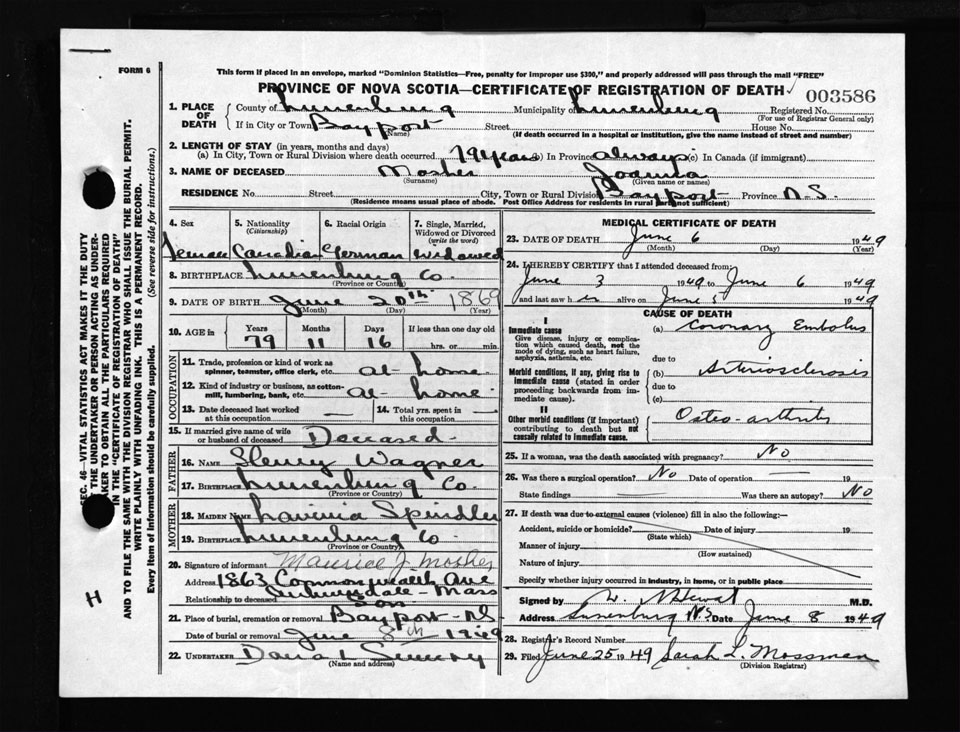 FORM 6
This form if placed in an envelope, marked "Dominion Statistics—Free, penalty for improper use $300," and properly addressed will pass through the mail "FREE"
PROVINCE OF NOVA SCOTIA—CERTIFICATE OF REGISTRATION OF DEATH
003586
1. PLACE OF DEATH
County of Lunenburg Municipality of Lunenburg Registered No.
(For use of Registrar General only)
If in City or Town Bayport Street House No.
(Name) (If death occurred in a hospital or institution, give the name instead of street and number)
2. LENGTH OF STAY (in years, months and days)
(a) In City, Town or Rural Division where death occurred 79 years (b) In Province always (c) In Canada (if immigrant)
3. NAME OF DECEASED Mosher
(Surname) (Given name or names)
RESIDENCE No. Street City, Town or Rural Division Bayport Province N.S.
(Residence means usual place of abode. Post Office Address for residents in rural not sufficient)
4. Sex 5. Nationality (Citizenship) 6. Racial Origin 7. Single, Married, Widowed or Divorced (write the word)
Female Canadian German Widowed
8. BIRTHPLACE Lunenburg Co.
(Province or Country)
9. DATE OF BIRTH June 20th 1869
(Month) (Day) (Year)
10. AGE in Years Months Days If less than one day old
79 11 16 hrs. or min.
OCCUPATION
11. Trade, profession or kind of work as spinner, teamster, office clerk, etc. at home
12. Kind of industry or business, as cotton-mill, lumbering, bank, etc. at home
13. Date deceased last worked at this occupation — 14. Total yrs. spent in this occupation —
15. If married give name of wife or husband of deceased Deceased
FATHER
16. NAME Henry Wagner
17. BIRTHPLACE Lunenburg Co.
(Province or Country)
MOTHER
18. MAIDEN NAME Lavinia Spindler
19. BIRTHPLACE Lunenburg Co
(Province or Country)
20. Signature of informant Maurice J. Mosher
Address 1863 Commonwealth Ave
Auburndale - Mass
Relationship to deceased Son
21. Place of burial, cremation or removal Bayport - N.S.
Date of burial or removal June 8th 1949
22. UNDERTAKER
(Name and address)
MEDICAL CERTIFICATE OF DEATH
23. DATE OF DEATH June 6 1949
(Month) (Day) (Year)
24. I HEREBY CERTIFY that I attended deceased from:
June 3 1949 to June 6 1949
and last saw her alive on June 5 1949
CAUSE OF DEATH
I
Immediate cause
Give disease, injury or complication which caused death, not the mode of dying, such as heart failure, asphyxia, asthenia, etc.
(a) Coronary Embolus
due to
Morbid conditions, if any, giving rise to immediate cause (stated in order proceeding backwards from immediate cause).
(b) Arteriosclerosis
due to
(c)
II
Other morbid conditions (if important) contributing to death but not causally related to immediate cause.
Osteo-arthritis
25. If a woman, was the death associated with pregnancy? No
26. Was there a surgical operation? No Date of operation 19
State findings Was there an autopsy? No
27. If death was due to external causes (violence) fill in also the following:
Accident, suicide or homicide? Date of injury 19
(State which)
Manner of injury
(How sustained)
Nature of injury
Specify whether injury occurred in industry, in home, or in public place
Signed by M.D.
Address Lunenburg N.S. Date June 8 1949
28. Registrar's Record Number
29. Filed June 25 1949 Sarah L. Mossman
(Division Registrar)
SEC. 46—VITAL STATISTICS ACT MAKES IT THE DUTY
THE UNDERTAKER OR PERSON ACTING AS UNDER-
TAKER TO OBTAIN ALL THE PARTICULARS REQUIRED
IN THE "CERTIFICATE OF REGISTRATION OF DEATH"
AND TO FILE THE SAME WITH THE DIVISION REGISTRAR WHO SHALL ISSUE THE BURIAL PERMIT.
WRITE PLAINLY WITH UNFADING INK. THIS IS A PERMANENT RECORD.
Every item of information should be carefully supplied. (See reverse side for instructions.)
H